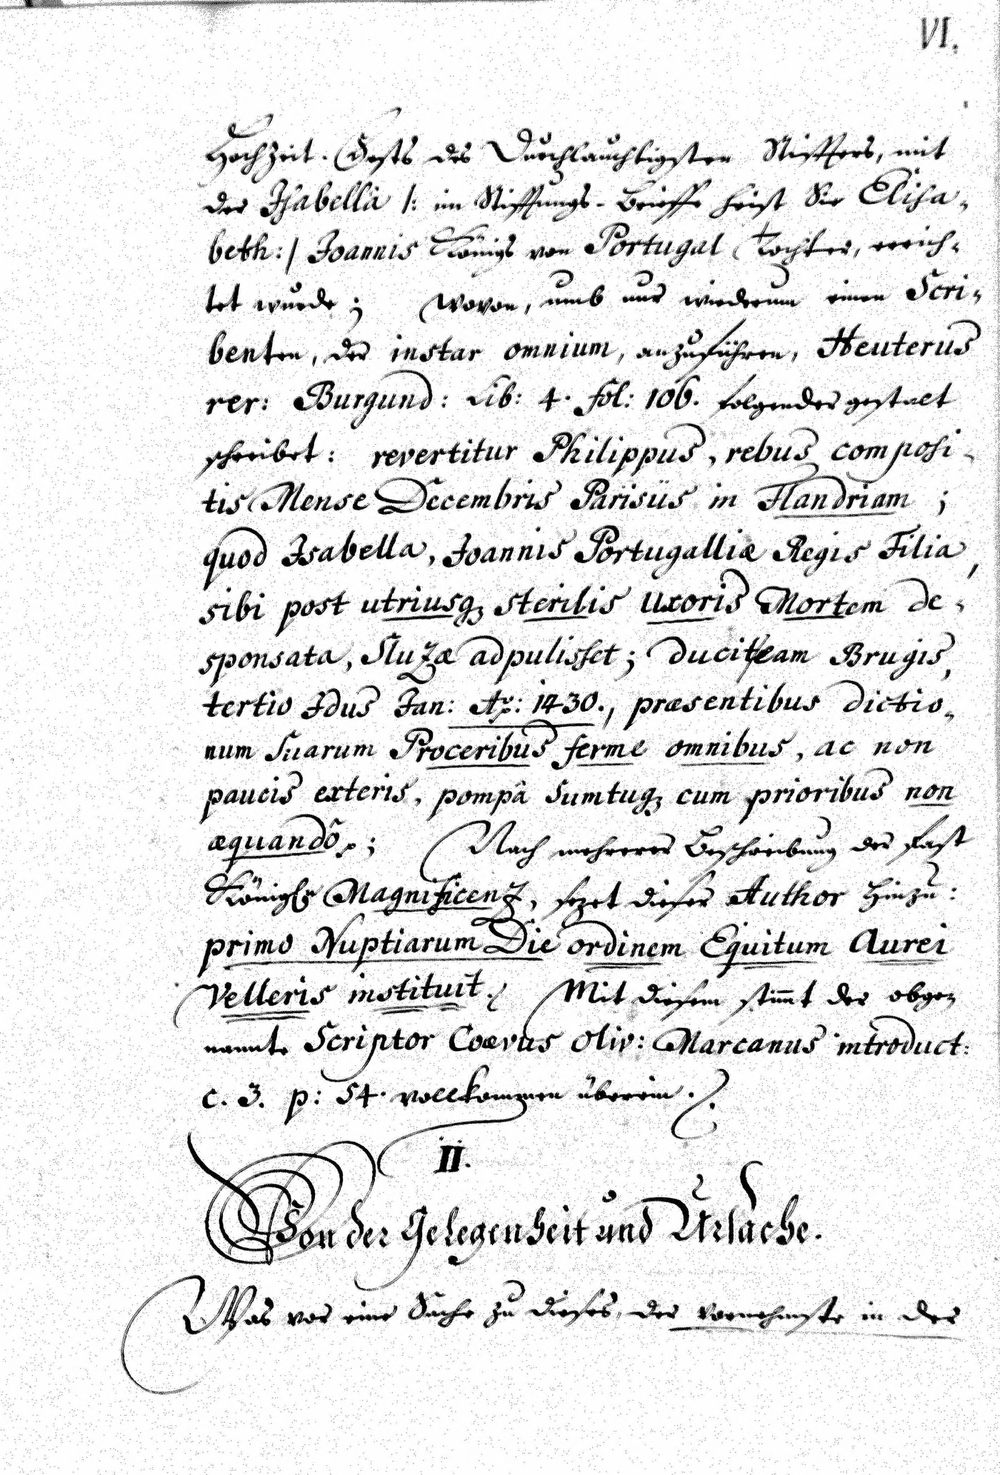 VI.
Hochzeit-Fests des Durchlauchtigsten Stiffters, mit
der Isabella /: im Stifftungs-Brieffe heist Sie Elisa-
beth :/ Joannis Königs von Portugal Tochter, errich-
tet wurde; Wovon, umb nur wiederum einen Scri-
benten, der instar omnium, anzuführen, Heuterus
rer: Burgund: Lib: 4. fol: 106. folgender gestalt
schreibet: revertitur Philippus, rebus composi-
tis Mense Decembris Parisiis in Flandriam;
quod Isabella, Joannis Portugalliæ Regis Filia,
sibi post utriusq; sterilis Uxoris Mortem de-
sponsata, Sluzæ adpulisset; Ducit eam Brugis,
tertio Idus Jan: Aõ: 1430., præsentibus dictio-
num suarum Proceribus ferme omnibus, ac non
paucis exteris, pompâ sumtuq; cum prioribus non
æquandô; Nach mehrerer Beschreibung der fast
Königls Magnificenz, sezet dieser Author hinzu:
primo Nuptiarum Die ordinem Equitum Aurei
Velleris instituit. Mit diesem stim̅t der obge-
nannte Scriptor Coævus Oliv: Marcanus introduct:
c. 3. p: 54. vollkommen überein.
II.
Von der Gelegenheit und Ursache.
Was vor eine Sache zu dieses, der vornehmste in der